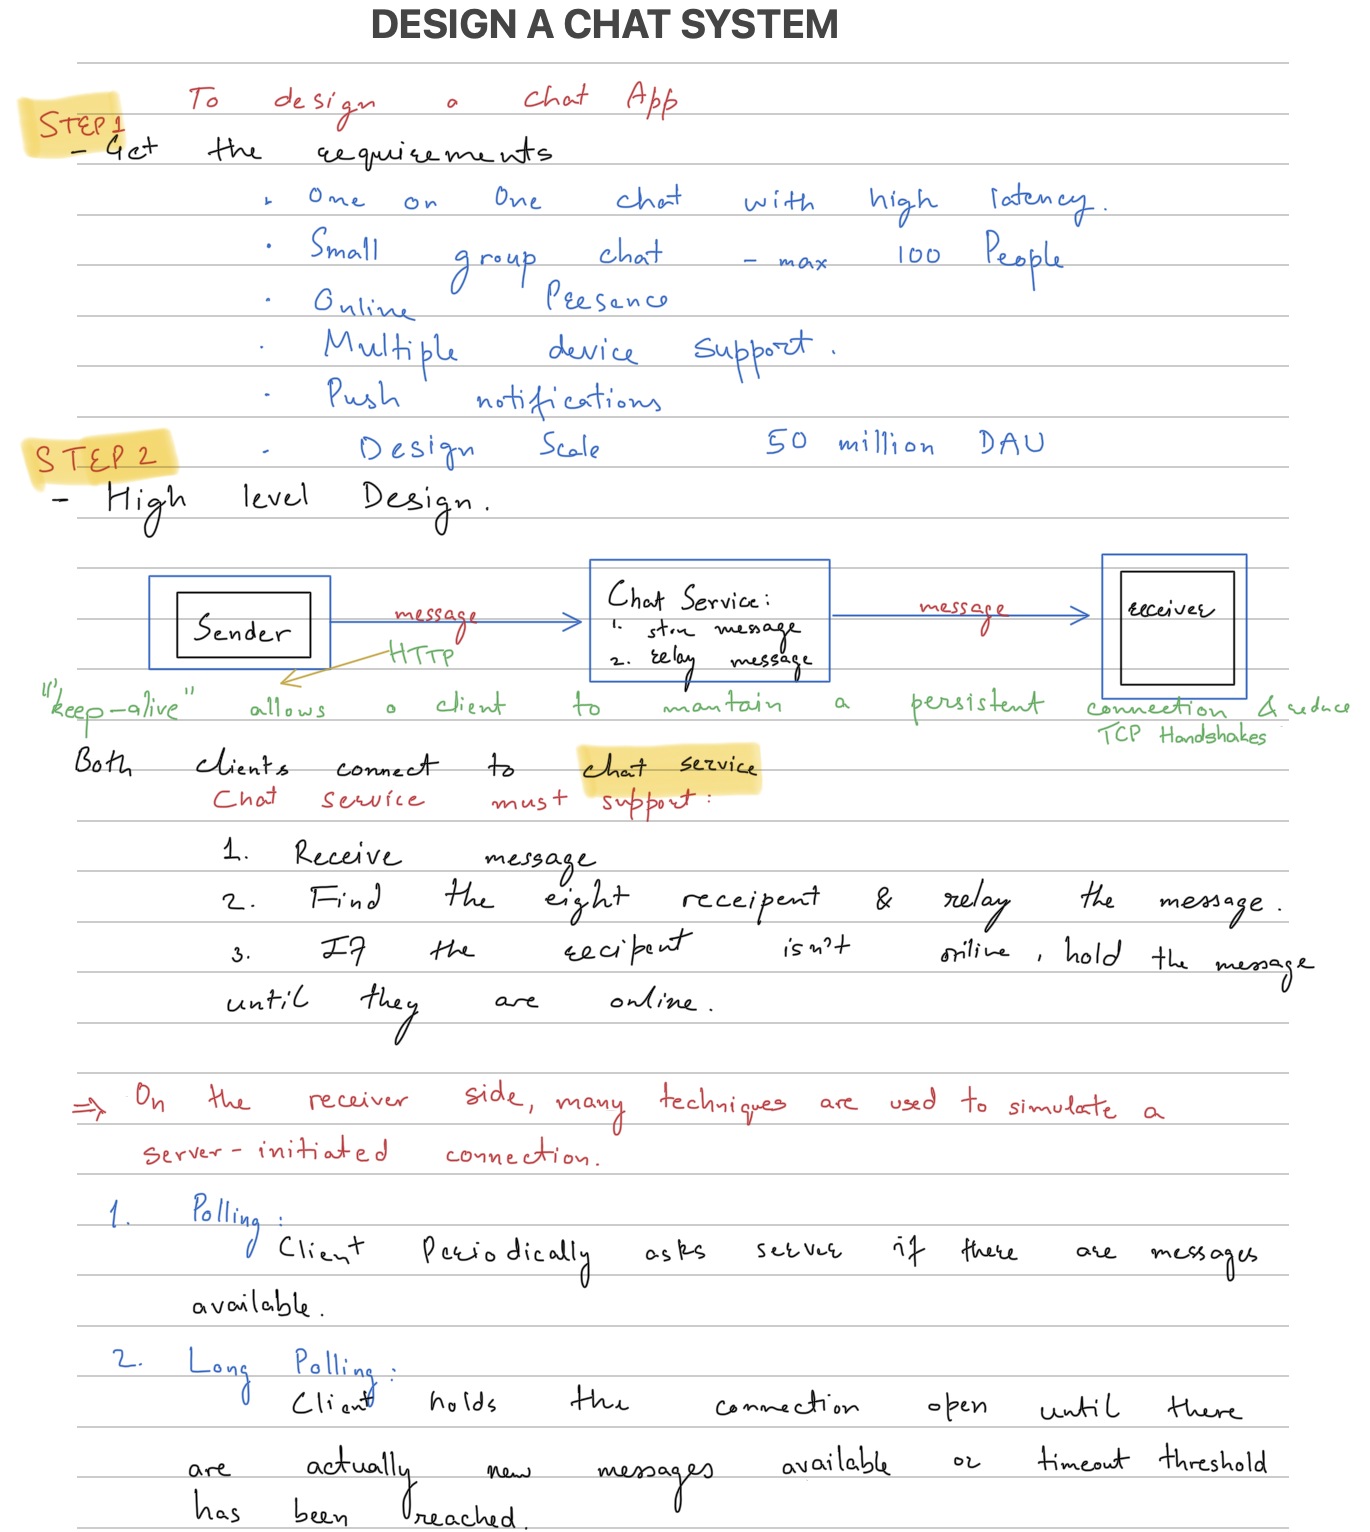 DESIGN A CHAT SYSTEM
To design a chat App
STEP 1
- Get the requirements
· One on One chat with high latency.
· Small group chat - max 100 People
· Online Presance
· Multiple device support.
· Push notifications
STEP 2
· Design Scale 50 million DAU
- High level Design.
Sender
message
HTTP
Chat Service:
1. store message
2. relay message
message
receiver
"keep-alive" allows a client to mantain a persistent connection & reduce
TCP Handshakes
Both clients connect to chat service
Chat service must support:
1. Receive message
2. Find the right receipent & relay the message.
3. If the recipent isn't online, hold the message
until they are online.
⇒ On the receiver side, many techniques are used to simulate a
server-initiated connection.
1. Polling:
Client Periodically asks server if there are messages
available.
2. Long Polling:
Client holds the connection open until there
are actually new messages available or timeout threshold
has been reached.